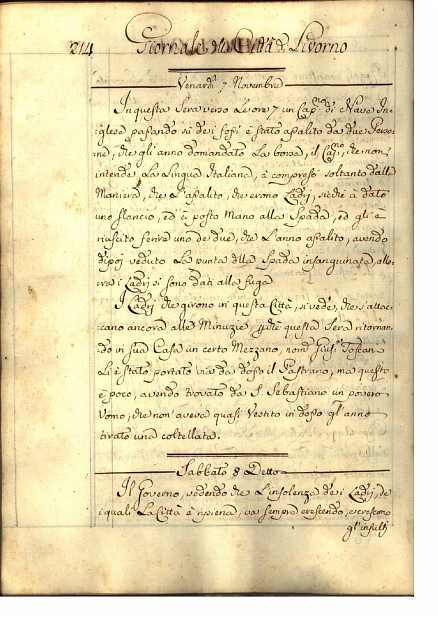 214 Giornale della Città di Livorno
Venardì 7 Novembre
In questa Sera verso Le ore 7 un Cap.no di Nave In-
glese pasando su dei fossi è stato asalito da due Perso-
ne, che gli anno domandato La borsa, il Cap.no, che non
intende La Lingua Italiana, à compreso soltanto dalla
Maniera, che L'asalito, che erono Ladri, si è dato
uno slancio, ed à posto Mano alla Spada, ed gli è
riuscito ferire uno de due, che L'anno asalito, avendo
dipoi veduto La punta della Spada insanguinata, allo-
ra i Ladri si sono dati alla fuga
I Ladri che girono in questa Città, si vede, che s'attac-
cano ancora alle Minuzie, perche questa Sera ritornan-
do in sua Casa un certo Mezzano, nom.o Giu.e Toscan
Li è stato portato via da dosso il Pastrano, ma questo
è poco, avendo trovato da S. Sebastiano un povero
Vomo, che non aveva quasi Vestito in dosso gl'anno
tirato una coltellata.
Sabbato 8 Detto
Il Governo, vedendo che L'insolenza dei Ladri, de
i quali La Città è ripiena, va sempre crescendo, e crescono
gl'insulti